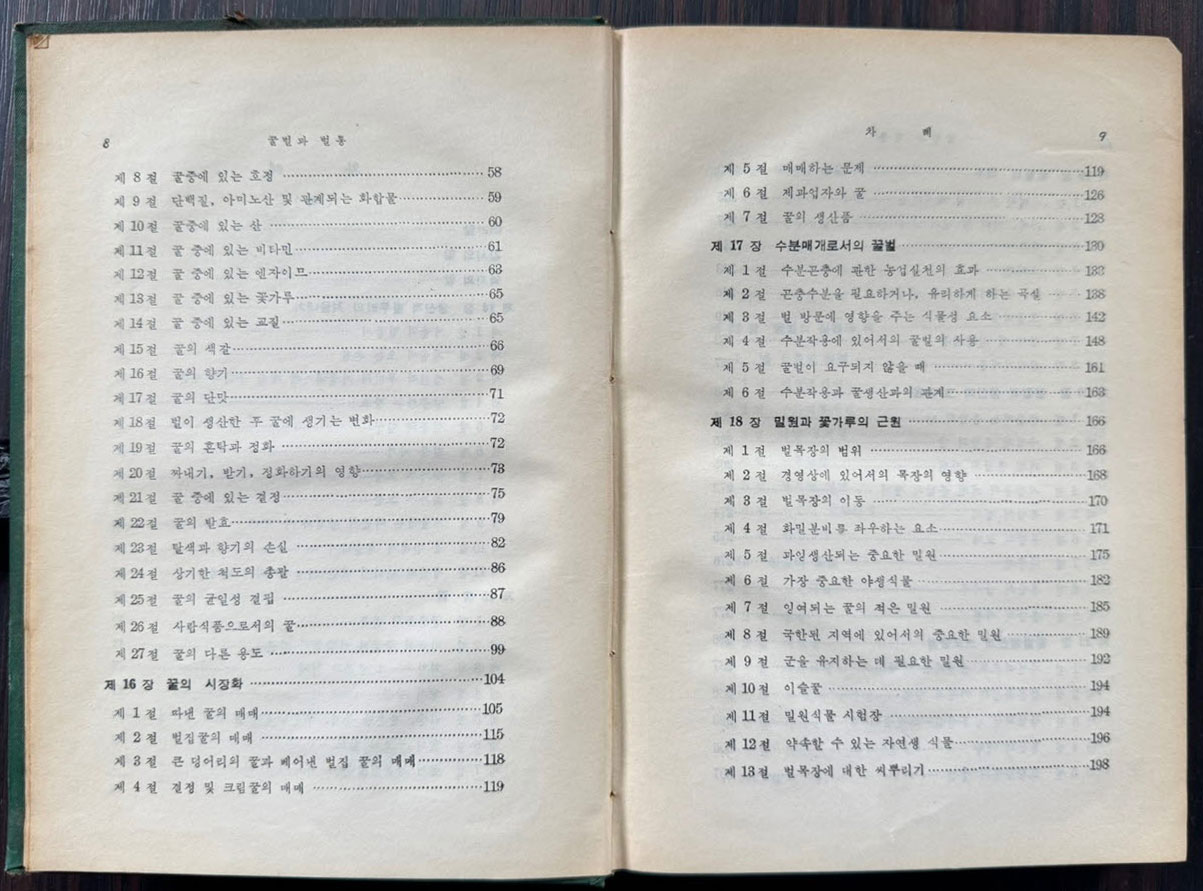 8 꿀벌과 벌통
제 8 절 꿀중에 있는 효정 58
제 9 절 단백질, 아미노산 및 관계되는 화합물 59
제 10 절 꿀중에 있는 산 60
제 11 절 꿀 중에 있는 비타민 61
제 12 절 꿀 중에 있는 엔자이므 63
제 13 절 꿀 중에 있는 꽃가루 65
제 14 절 꿀 중에 있는 교질 65
제 15 절 꿀의 색갈 66
제 16 절 꿀의 향기 69
제 17 절 꿀의 단맛 71
제 18 절 벌이 생산한 후 꿀에 생기는 변화 72
제 19 절 꿀의 혼탁과 정화 72
제 20 절 짜내기, 받기, 정화하기의 영향 73
제 21 절 꿀 중에 있는 결정 75
제 22 절 꿀의 발효 79
제 23 절 탈색과 향기의 손실 82
제 24 절 상기한 척도의 총괄 86
제 25 절 꿀의 균일성 결핍 87
제 26 절 사람식품으로서의 꿀 88
제 27 절 꿀의 다른 용도 99
제 16 장 꿀의 시장화 104
제 1 절 따낸 꿀의 매매 105
제 2 절 벌집꿀의 매매 115
제 3 절 큰 덩어리의 꿀과 베어낸 벌집 꿀의 매매 118
제 4 절 결정 및 크림꿀의 매매 119
차 례 9
제 5 절 매매하는 문제 119
제 6 절 제과업자와 꿀 126
제 7 절 꿀의 생산품 128
제 17 장 수분매개로서의 꿀벌 130
제 1 절 수분곤충에 관한 농업실천의 효과 133
제 2 절 곤충수분을 필요하거나, 유리하게 하는 곡실 138
제 3 절 벌 방문에 영향을 주는 식물성 요소 142
제 4 절 수분작용에 있어서의 꿀벌의 사용 148
제 5 절 꿀벌이 요구되지 않을 때 161
제 6 절 수분작용과 꿀생산과의 관계 163
제 18 장 밀원과 꽃가루의 근원 166
제 1 절 벌목장의 범위 166
제 2 절 경영상에 있어서의 목장의 영향 168
제 3 절 벌목장의 이동 170
제 4 절 화밀분비를 좌우하는 요소 171
제 5 절 과잉생산되는 중요한 밀원 175
제 6 절 가장 중요한 야생식물 182
제 7 절 잉여되는 꿀의 적은 밀원 185
제 8 절 국한된 지역에 있어서의 중요한 밀원 189
제 9 절 군을 유지하는 데 필요한 밀원 192
제 10 절 이슬꿀 194
제 11 절 밀원식물 시험장 194
제 12 절 약속할 수 있는 자연생 식물 196
제 13 절 벌목장에 대한 씨뿌리기 198